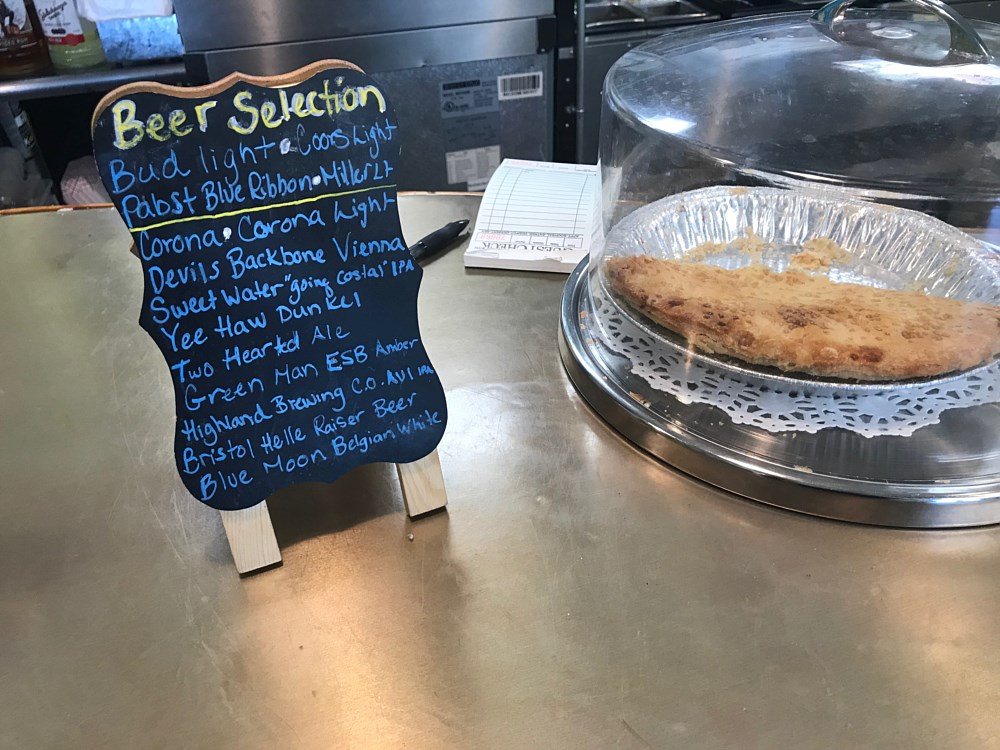 Beer Selection
Bud light • Coors Light
Pabst Blue Ribbon • Miller Lt
Corona • Corona Light
Devils Backbone Vienna
Sweet Water "going costal" IPA
Yee Haw Dunkel
Two Hearted Ale
Green Man ESB Amber
Highland Brewing Co. AVL IPA
Bristol Helle Raiser Beer
Blue Moon Belgian White
GUEST CHECK